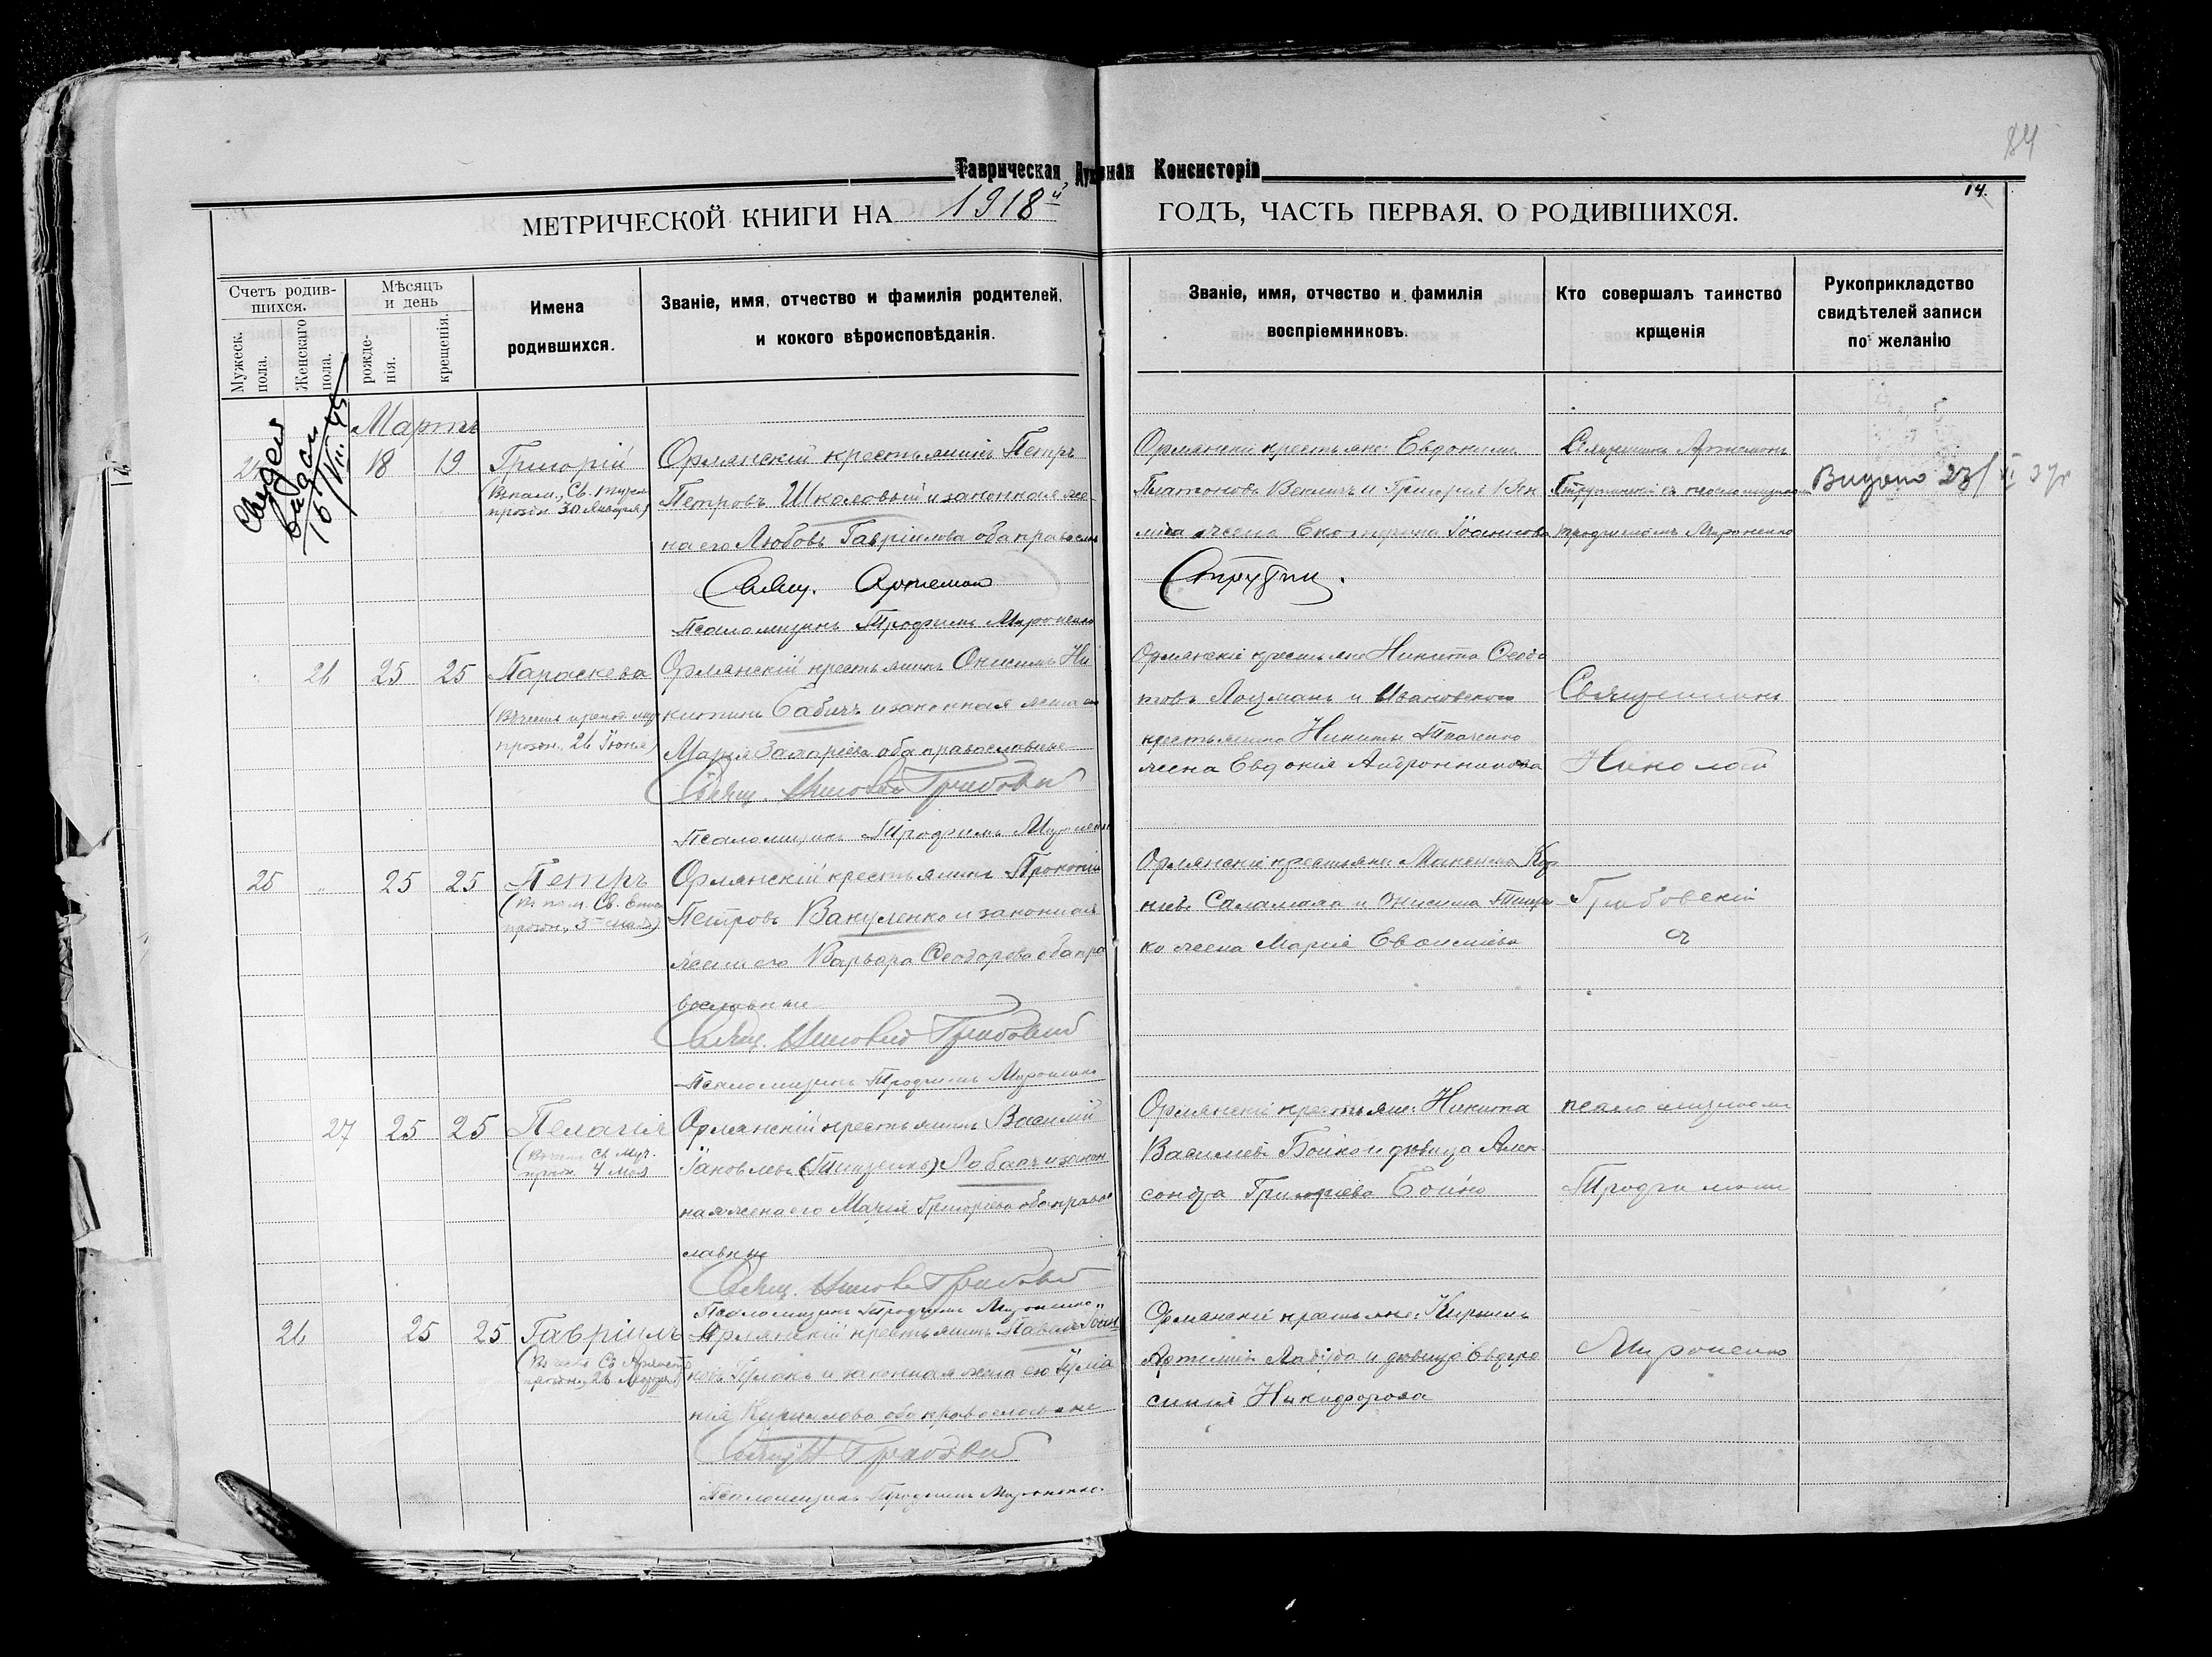 84
Таврическая Духовная Консисторія
14.
МЕТРИЧЕСКОЙ КНИГИ НА 1918й ГОДЪ, ЧАСТЬ ПЕРВАЯ. О РОДИВШИХСЯ.
Счетъ родив-
шихся.
Мужеск.
пола.
Женскаго
пола.
Мѣсяцъ
и день
рожде-
нія.
крещенія.
Имена
родившихся.
Званіе, имя, отчество и фамилія родителей,
и кокого вѣроисповѣданія.
Званіе, имя, отчество и фамилія
воспріемниковъ.
Кто совершалъ таинство
крщенія
Рукоприкладство
свидѣтелей записи
по желанію
Мартъ
18 19
Григорій
празн. 30 Января)
Орлянскій крестьянинъ Петръ
Петровъ Шкаловый и законная же-
на его Любовь Гавріилова оба правосл
Свящ. Артемон
Псаломщикъ Трофимъ Мироненко
Орлянскіе крестьяне: Евдокимъ
Платоновъ Веклич и Григорія Век
лича жена Екатерина Іоаннова
Струтин.
Священникъ Артемонъ
съ псаломщикомъ
Трофимомъ Мироненко
Выдано 23/XI 37г
26 25 25
Параскева
празн. 26 Іюня)
Орлянскій крестьянинъ Онисимъ Ни
китинъ Бабичъ и законная жена его
Марія Захаріева оба православные
Свящ. Николай Грибовскій
Псаломщикъ Трофимъ Мироненко
Орлянскіе крестьяне Никита Ѳеодо
товъ Лоцманъ и Ивановскаго
крестьянина Никиты Ткаченко
жена Евдокія Андронникова
Священникъ
Николай
25 " 25 25
Петръ
празн. 3 мая)
Орлянскій крестьянинъ Прокопій
Петровъ Вакуленко и законная
жена его Варвара Ѳеодорова оба пра
вославные
Свящ. Николай Грибовскій
Псаломщикъ Трофимъ Мироненко
Орлянскіе крестьяне: Максимъ
Саламаха и Онисима
ко жена Марія
Грибовскій
съ
27 25 25
Пелагія
(Въ честь Св. Муч.
празн. 4 Мая
Орлянскій крестьянинъ Василій
Іаковлевъ (Тищенко) Лабасъ и закон
ная жена его Марія Григоріева оба правос
лавные
Свящ. Николай Грибовскій
Псаломщикъ Трофимъ Мироненко
Орлянскіе крестьяне: Никита
Василіевъ Бойко и дѣвица Алек-
сандра Григоріева Бойко
псаломщикомъ
Трофимомъ
26 25 25
Гавріилъ
празн. 26 Марта)
Орлянскій крестьянинъ Павелъ Іоан
новъ и законная жена его Іуліа
нія Кириллова оба православные
Свящ. Н Грибовскій
Псаломщикъ Трофимъ Мироненко.
Орлянскіе крестьяне: Кириллъ
и дѣвица Евфро
синія Никифорова
Мироненко